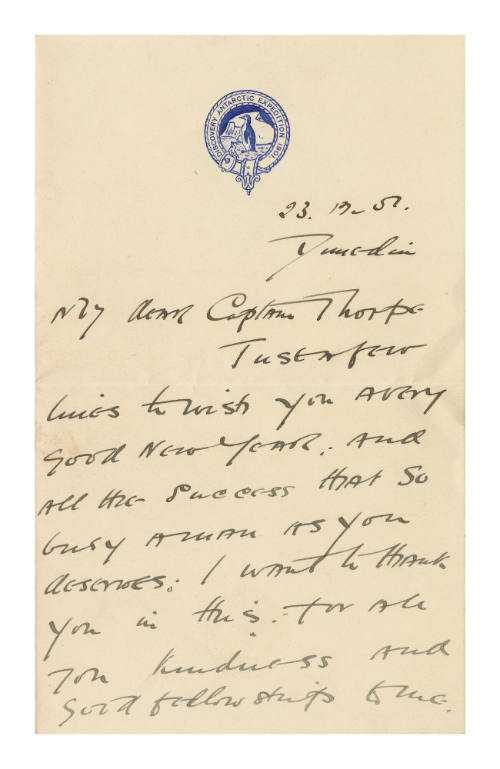 DISCOVERY ANTARCTIC EXPEDITION 1901.
23. 12. 01.
Dunedin
My dear Captain Thorpe
Just a few
lines to wish you a very
good New Year. and
all the success that so
busy a man as you
deserves. I want to thank
you in this. for all
you kindness and
good fellowship to me.